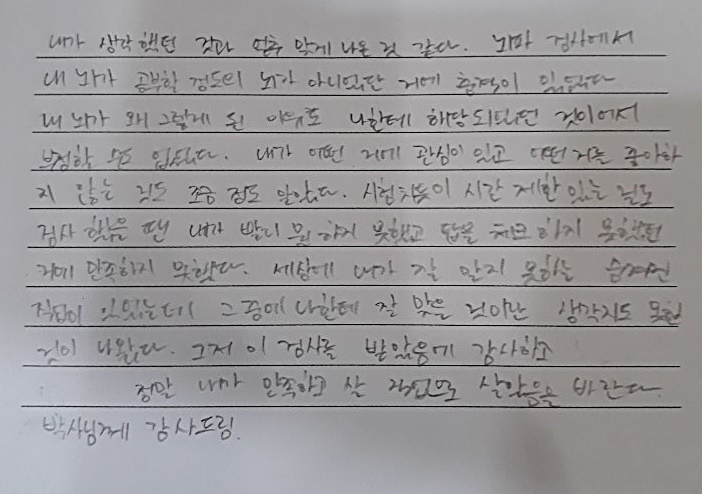 내가 생각했던 것과 맞게 나온 것 같다. 뇌파 검사에서
내 뇌가 공부할 정도의 뇌가 아니었단 거에 충격이 있었다
내 뇌가 왜 그렇게 된 이유도 나한테 해당되었던 것이어서
부정할 수도 없었다. 내가 어떤 거에 관심이 있고 어떤 거를 좋아하
지 않는 지도 조금 정도 알았다. 시험치듯이 시간 제한 있는 걸로
검사 했을 땐 내가 빨리 뭘 하지 못했고 답을 체크하지 못했던
거에 만족하지 못했다. 세상에 내가 잘 알지 못하는 숨겨진
직업이 있었는데 그 중에 나한테 잘 맞을 것이란 생각지도 못한
것이 나왔다. 그저 이 검사를 받았음에 감사하고
정말 내가 만족하고 살 직업으로 살았음을 바란다.
박사님께 감사드림.